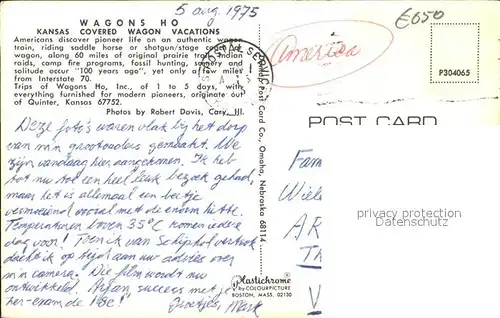 5 aug. 1975
WAGONS HO
KANSAS COVERED WAGON VACATIONS
Americans discover pioneer life on an authentic wagon
train, riding saddle horse or shotgun/stage coach
wagon, along 60 miles of original prairie trail. Indian
raids, camp fire programs, fossil hunting, scenery and
solitude occur "100 years ago", yet only a few miles
from Interstate 70.
Trips of Wagons Ho, Inc., of 1 to 5 days, with
everything furnished modern pioneers, originate out
of Quinter, Kansas 67752.
Photos by Robert Davis, Cary, Ill.
America
€050
P304065
POST CARD
Post Card Co., Omaha, Nebraska 68114
Deze foto's waren vlak bij het dorp
van m'n grootouders gemaakt. We
zijn vandaag hier aangekomen. Ik heb
tot nu tot een heel leuk bezoek gehad,
maar het is allemaal een beetje
vermoeiend vooral met de enorm hitte.
Temperaturen boven 35°C komen iedere
dag voor! Toen ik van Schiphol vertrok
dacht ik op tijd aan uw advies over
m'n camera. Die film wordt nu
ontwikkeld. Arjan success met je
her-examen
Groetjes, Mark
Plastichrome®
by COLOURPICTURE
BOSTON, MASS. 02130
Fam
Wiels
AR
Th
V
privacy protection
Datenschutz